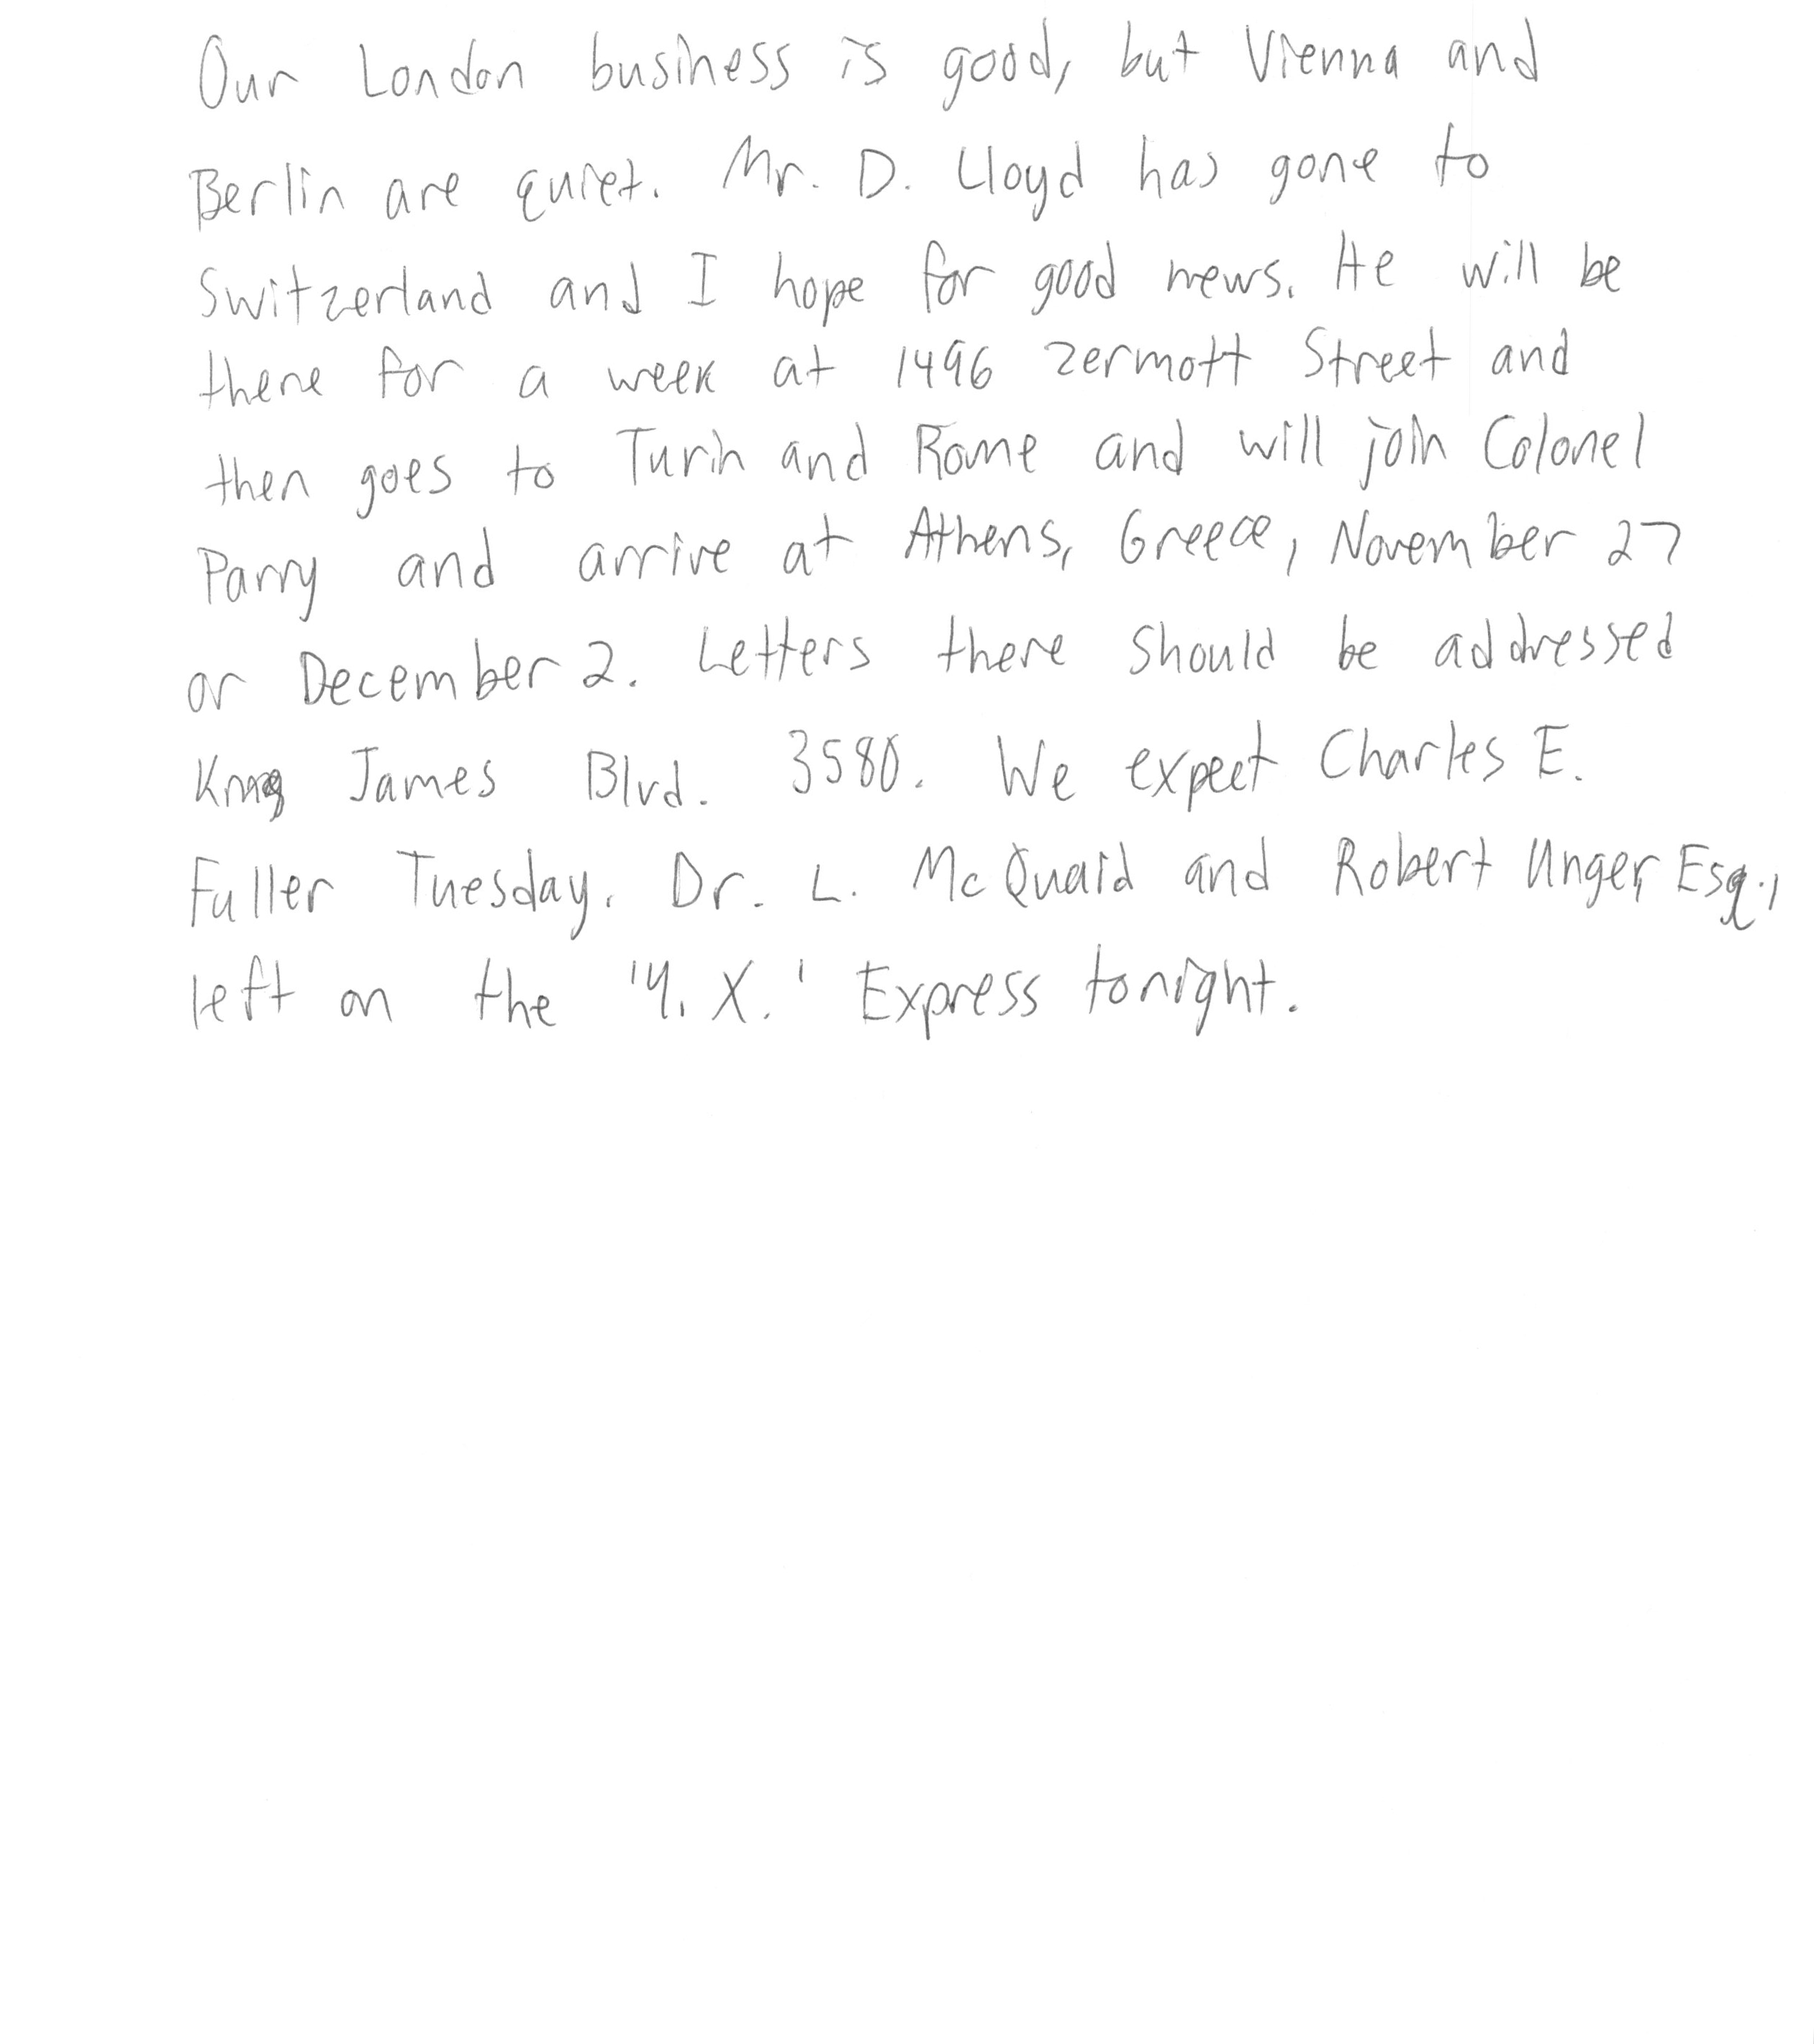 Our London business is good, but Vienna and
Berlin are quiet. Mr. D. Lloyd has gone to
Switzerland and I hope for good news. He will be
there for a week at 1496 Zermott Street and
then goes to Turin and Rome and will join Colonel
Parry and arrive at Athens, Greece, November 27
or December 2. Letters there should be addressed
King James Blvd. 3580. We expect Charles E.
Fuller Tuesday. Dr. L. McQuaid and Robert Unger, Esq.,
left on the 'Y. X.' Express tonight.